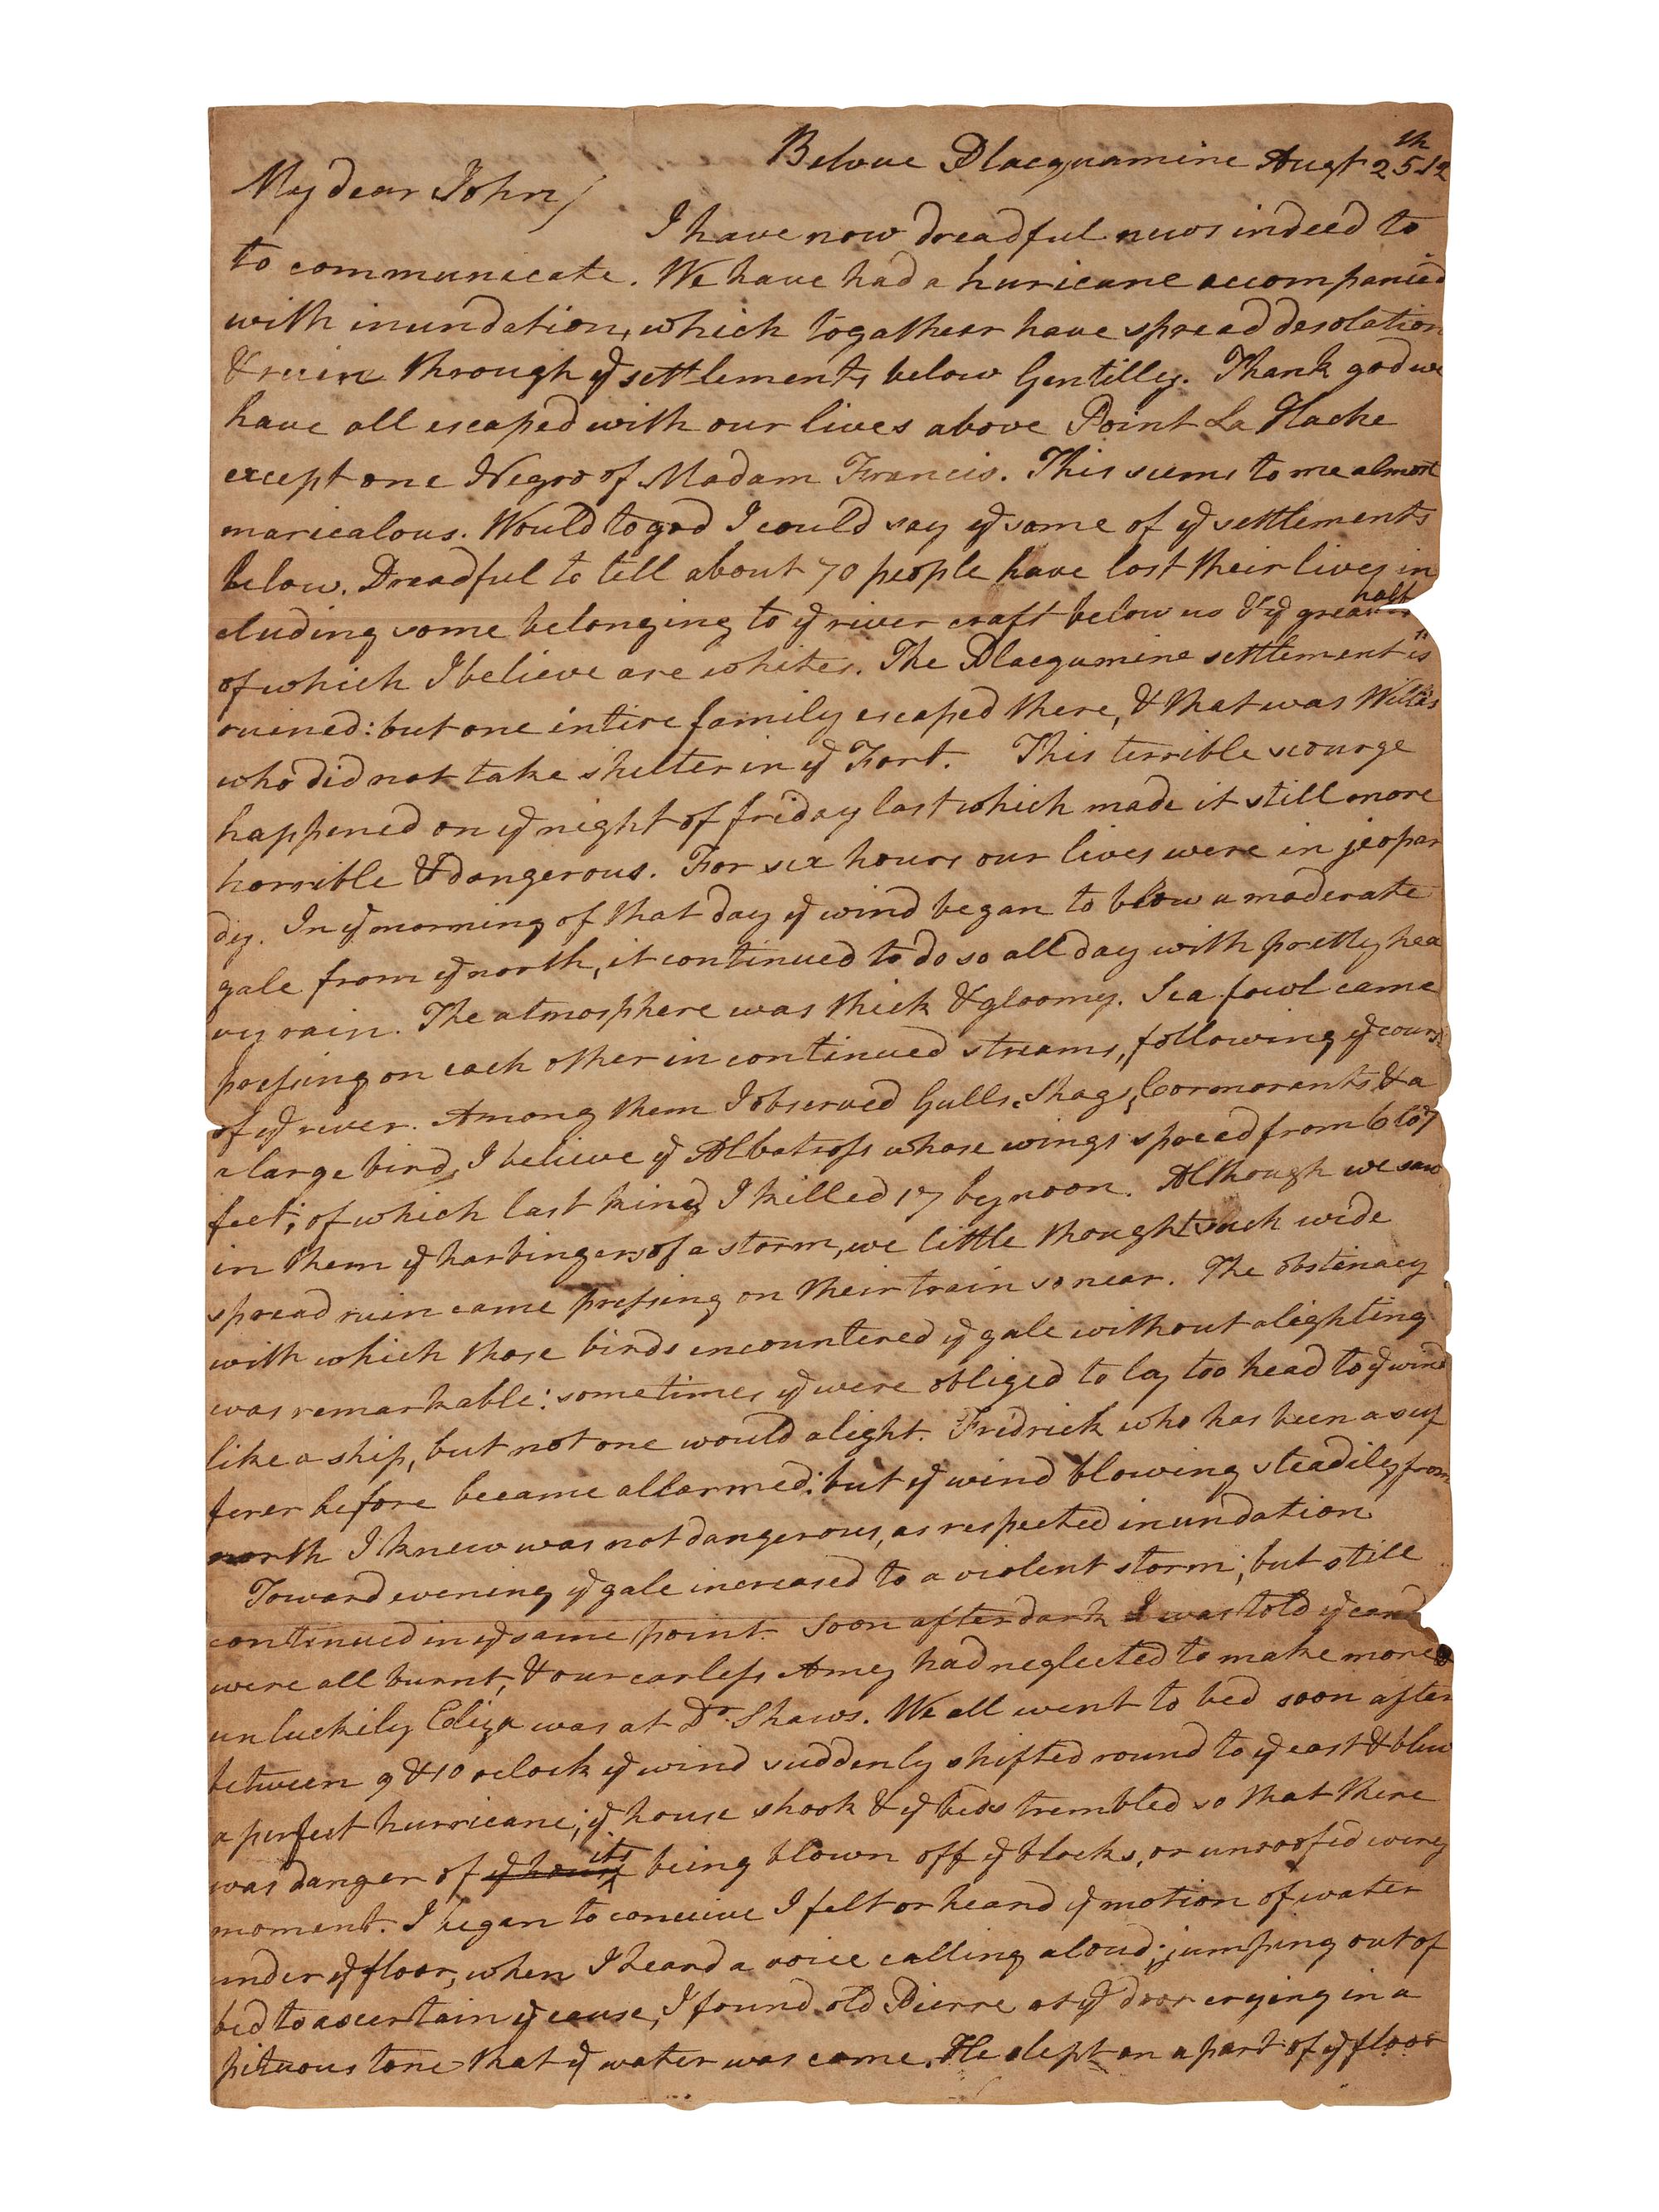 Belowe Placquamine Augt 25th 12
My dear John/
I have now dreadful news indeed to
to communicate. We have had a huricane accompanied
with inundation, which togatheer have spread desolation
& ruin through ye settlements below Gentilly. Thank god we
have all escaped with our lives above Point La Hache
except one Negro of Madam Francis. This seems to me almost
maricalous. Would to god I could say ye same of ye settlements
below. Dreadful to tell about 70 people have lost their lives in
cluding some belonging to ye river craft below us & ye great half
of which I believe are whites. The Placqumine settlement is
ruined: but one intire family escaped there, & that was
who did not take shelter in ye Fort. This terrible scourge
happened on ye night of friday last which made it still more
horrible & dangerous. For six hours our lives were in jeopar
dy. In ye morning of that day ye wind began to blow a moderate
gale from ye north, it continued to do so all day with pretty hea
vy rain. The atmosphere was thick & gloomy. Sea fowl came
pressing on each other in continued streams, following ye cours
of ye river. Among them I observed Gulls, Shags, Cormorants, & a
a large bird, I believe ye Albatross whose wings spread from 6 to 7
feet; of which last kind I killed 17 by noon. Although we saw
in them ye harbingers of a storm, we little thought such wide
spread ruin came pressing on their train so near. The obstinacy
with which those birds encountered ye gale without alighting
was remarkable: sometimes ye were obliged to lay too head to ye wind
like a ship, but not one would alight. Fridrick who has been a suf
ferer before became allarmed: but ye wind blowing steadily from
north I knew was not dangerous, as respected inundation
Toward evening ye gale increased to a violent storm; but still
continued in ye same point. Soon after dark I was told ye cand
were all burnt, & our carless Amey had neglected to make more
unluckily Eliza was at Dr. Shaws. We all went to bed soon after
between 9 & 10 oclock ye wind suddenly shifted round to ye east & blew
a perfect hurricane; ye house shook & ye beds trembled so that there
was danger of ye house its being blown off ye blocks, or unroofed every
moment. I began to conceive I felt or heard ye motion of water
under ye floor, when I heard a voice calling aloud; jumping out of
bed to ascertain ye cause, I found old Pierre at ye door crying in a
pituous tone that ye water was come. He slept on a part of ye floor